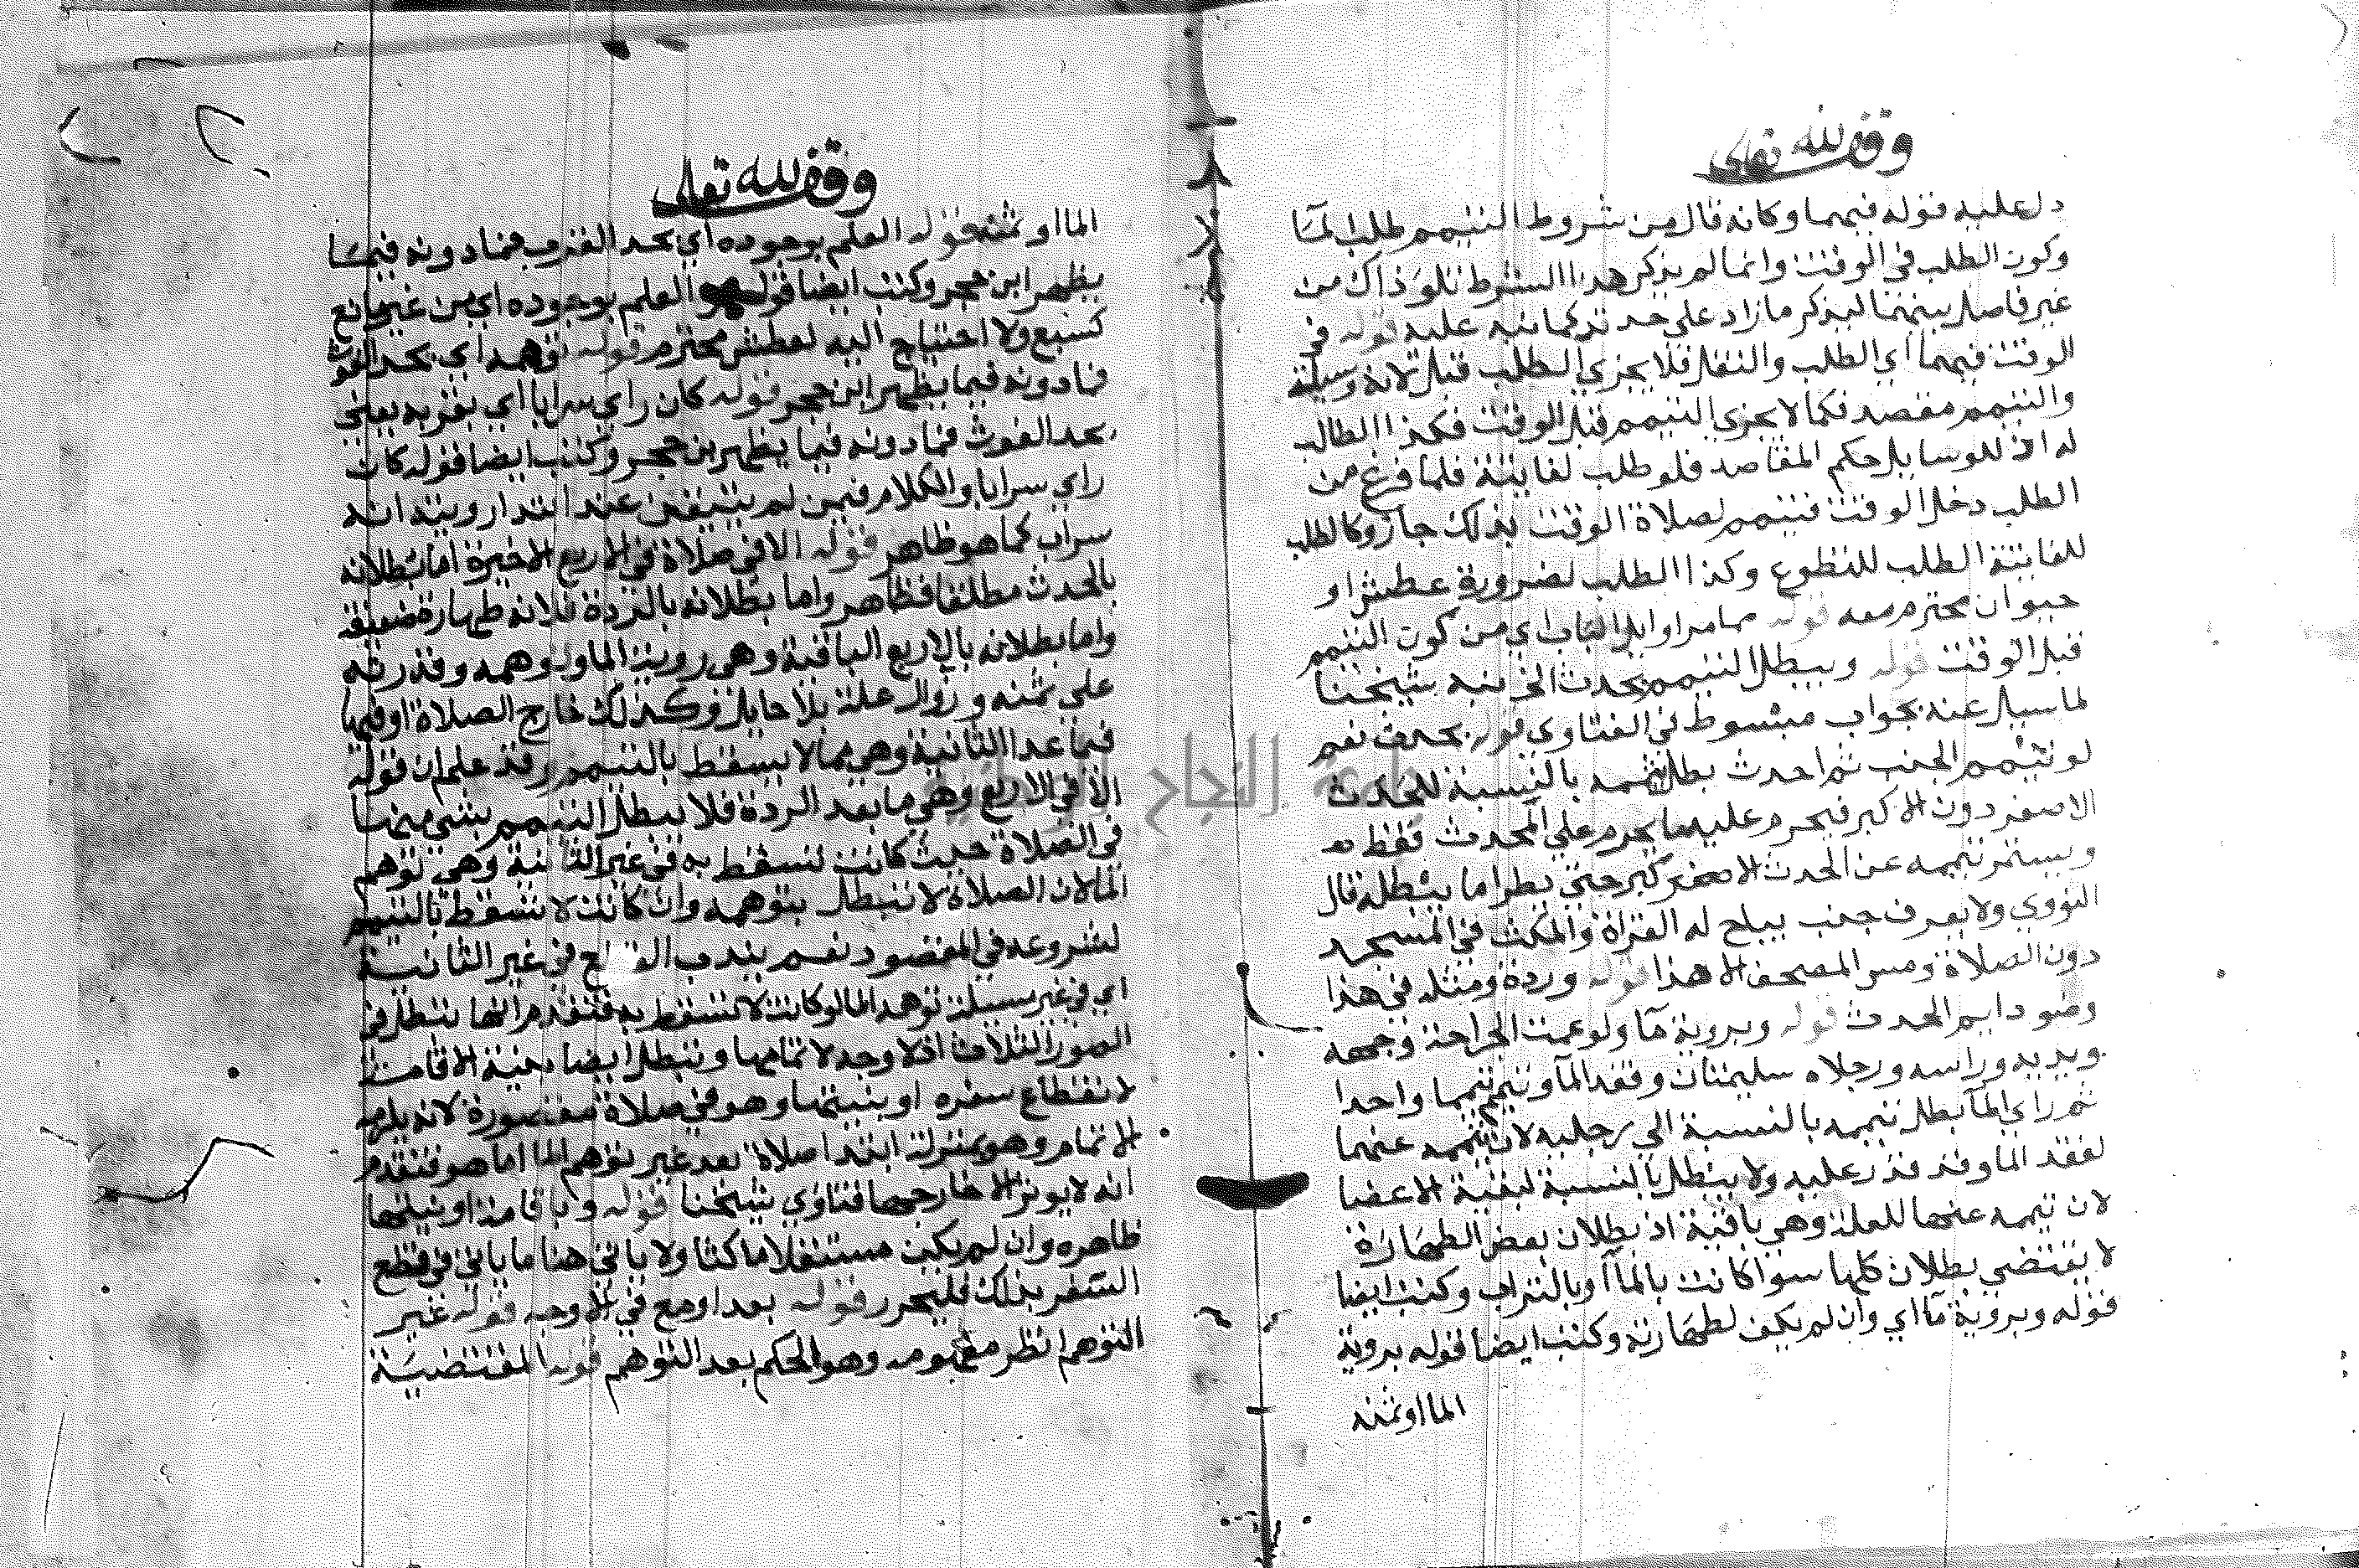 وقف لله تعالى
دل عليه قوله فيهما وكانه قال من شروط التيمم طلب الما
وكون الطلب في الوقت وانما لم يذكر هذا الشرط تلو ذاك من
غير فاصل بينهما ليذكر ما زاد على حد كما نبه عليه قوله في
الوقت فيهما اي الطلب والنقل فلا يجزي الطلب قبل لانه وسيلة
والتيمم مقصد فكما لا يجزي التيمم قبل الوقت فكذا الطالب
له اذ للوسايل حكم المقاصد فلو طلب لفايتة فلما فرغ من
الطلب دخل الوقت فتيمم لصلاة الوقت بذلك جاز وكالطلب
للفايتة الطلب للتطوع وكذا الطلب لضرورة عطش او
حيوان محترم معه قوله مما مر اوايل الباب اي من كون التيمم
قبل الوقت قوله ويبطل التيمم بحدث الخ نبه شيخنا
لما سيل عنه بجواب مبسوط في الفتاوي قوله بحدث نعم
لو تيمم الجنب ثم احدث بطل تيممه بالنسبة للحدث
الاصغر دون الاكبر فيحرم عليه ما يحرم على المحدث فقط
ويستمر تيممه عن الحدث الاكبر حتى يطرا ما يبطله قال
النووي ولا يعرف جنب يباح له القراة والمكث في المسجد
دون الصلاة ومس المصحف الا هذا قوله وردة ومثله في هذا
وضو دايم الحدث قوله وبروية ما ولو عمت الجراحة وجهه
ويديه وراسه ورجلاه سليمتان وفقد الما وتيمم تيمما واحدا
ثم راي الما بطل تيممه بالنسبة الي رجليه لان تيممه عنهما
لفقد الما وقد قدر عليه ولا يبطل بالنسبة لبقية الاعضا
لان تيممه عنها للعلة وهي باقية اذ بطلان بعض الطهارة
لا يقتضي بطلان كلها سوا كانت بالما او بالتراب وكتب ايضا
قوله وبروية ما اي وان لم يكف لطهارته وكتب ايضا قوله بروية
الما او ثمنه
وقف لله تعالى
الما او ثمنه قوله العلم بوجوده اي بحد القرب فما دونه فيما
يظهر ابن حجر وكتب ايضا قوله العلم بوجوده اي من غير مانع
كسبع ولا احتياج اليه لعطش محترم قوله توهمه اي بحد الغوث
فما دونه فيما يظهر ابن حجر قوله كان راي سرابا اي بقربه يعني
بحد الغوث فما دونه فيما يظهر بن حجر وكتب ايضا قوله كان
راي سرابا والكلام فيمن لم يتيقن عند ابتدا رويته انه
سراب كما هو ظاهر قوله الا في صلاة في الاربع الاخيرة اما بطلانه
بالحدث مطلقا فظاهر واما بطلانه بالردة فلانه طهارة ضعيفة
واما بطلانه بالاربع الباقية وهي روية الما وتوهمه وقدرته
على ثمنه وزوال علة بلا حايل وكذلك خارج الصلاة او فيها
فيما عدا الثانية وهي مما لا يسقط بالتيمم وقد علم ان قوله
الا في الاربع وهي ما بعد الردة فلا يبطل التيمم بشي منها
في الصلاة حيث كانت تسقط به في غير الثانية وهي توهم
الما لان الصلاة لا تبطل بتوهمه وان كانت لا تسقط بالتيمم
لشروعه في المقصود نعم يندب في غير الثانية
اي في غير مسيلة توهم الما لو كانت لا تسقط به فتقدم انها تبطل في
الصور الثلاث اذ لا وجه لاتمامها وتبطل ايضا بنية الاقامة
لانقطاع سفره او بنيتها وهو في صلاة مقصورة لانه يلزمه
الاتمام وهو بمنزلة ابتدا صلاة بعد غير توهم الما اما هو فتقدم
انه لا يوثر الا خارجها فتاوي شيخنا قوله وباقامة او نيتها
ظاهره وان لم يكن مستقلا ماكثا ولا ياتي هنا ما ياتي في قطع
السفر بذلك فليحرر قوله بعد او مع في الاوجه قوله غير
التوهم انظر مفهومه وهو الحكم بعد التوهم قوله المقتضية